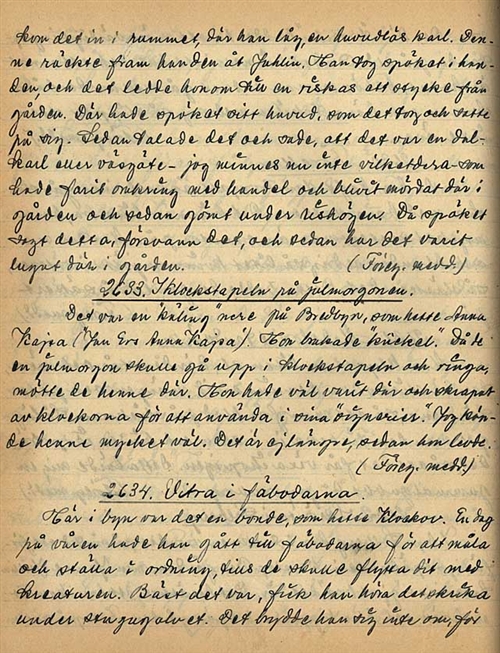 kom det in i rummet, där han låg, en huvudlös karl. Den-
ne räckte fram handen åt Juhlin. Han tog spöket i han-
den, och det ledde honom till en riskas ett stycke från
gården. Där hade spöket sitt huvud, som det tog och satte
på sig. Sedan talade det och sade, att det var en dal-
karl eller västgöte – jag minnes nu inte vilketdera – som
hade farit omkring med handel och blivit mördad där i
gården och sedan gömt under rishögen. Då spöket
sagt detta, försvann det, och sedan har det varit
lugnt där i gården. (Föreg. medd.)
2633. I klockstapeln på julmorgonen.
Det var en "käling" nere på Bredbyn, som hette Anna
Kajsa ("Jan Ers Anna Kajsa"). Hon brukade "kückel". Då de
en julmorgon skulle gå upp i klockstapeln och ringa,
mötte de henne där. Hon hade väl varit där och skrapat
av klockorna för att använda i sina "signerier." Jag kän-
de henne mycket väl. Det är ej längre, sedan hon levde.
(Föreg. medd.)
2634. Vitra i fäbodarna.
Här i byn var det en bonde, som hette Klockov. En dag
på våren hade han gått till fäbodarna för att måla
och ställa i ordning, tills de skulle flytta dit med
kreaturen. Bäst det var, fick han höra det skrika
under stugugolvet. Det brydde han sig inte om, för